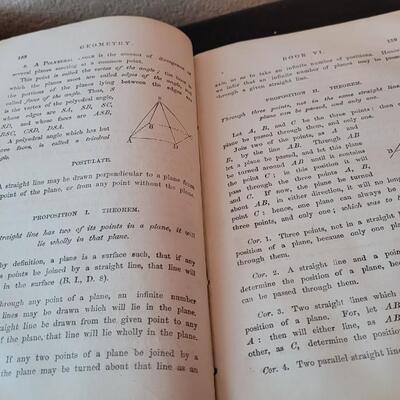 188
GEOMETRY.
8. A POLYEDRAL ANGLE is the amount of divergence of
several planes meeting at a common point.
This point is called the vertex of the angle; the lines in
which the planes meet are called edges of the angle, and
the portions of the planes lying between the edges are
called faces of the angle. Thus, S
is the vertex of the polyedral angle,
whose edges are SA, SB, SC,
SD, and whose faces are ASB,
BSC, CSD, DSA.
A polyedral angle which has but
three faces, is called a triedral
angle.
S
D
B
POSTULATE.
A straight line may be drawn perpendicular to a plane from
point of the plane, or from any point without the plane.
PROPOSITION I. THEOREM.
straight line has two of its points in a plane, it will
lie wholly in that plane.
by definition, a plane is a surface such, that if any
points be joined by a straight line, that line will
in the surface (B. I., D. 8).
through any point of a plane, an infinite number
lines may be drawn which will lie in the plane.
straight line be drawn from the given point to any
of the plane, that line will lie wholly in the plane.
If any two points of a plane be joined by a
the plane may be turned about that line as an
BOOK VI.
189
axis, so as to take an infinite number of positions. Hence,
we infer that an infinite number of planes may be passed
through a given straight line.
PROPOSITION II. THEOREM.
Through three points, not in the same straight line,
plane can be passed, and only one.
Let A, B, and C be the three points: then
be passed through them, and only one.
Join two of the points, as A and
B, by the line AB. Through AB
let a plane be passed, and let this plane
be turned around AB until it
pass through the three points A, B,
and C. If now, the plane be turned
about AB, in either direction, it will no longer
point C: hence, one plane can always
three points, and only one; which was to be
Cor. 1. Three points, not in a straight
position of a plane, because only one plane
through them.
Cor. 2. A straight line and a point
determine the position of a plane, because
can be passed through them.
Cor. 3. Two straight lines which
position of a plane. For, let AB
A: then will either line, as AB
other, as C, determine the position
Cor. 4. Two parallel straight lines